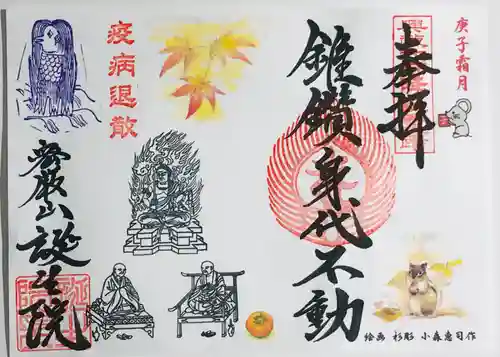 庚子霜月
奉拝
錐鑽身代不動
疫病退散
密厳山誕生院
絵画 杉彫 小森惠司作